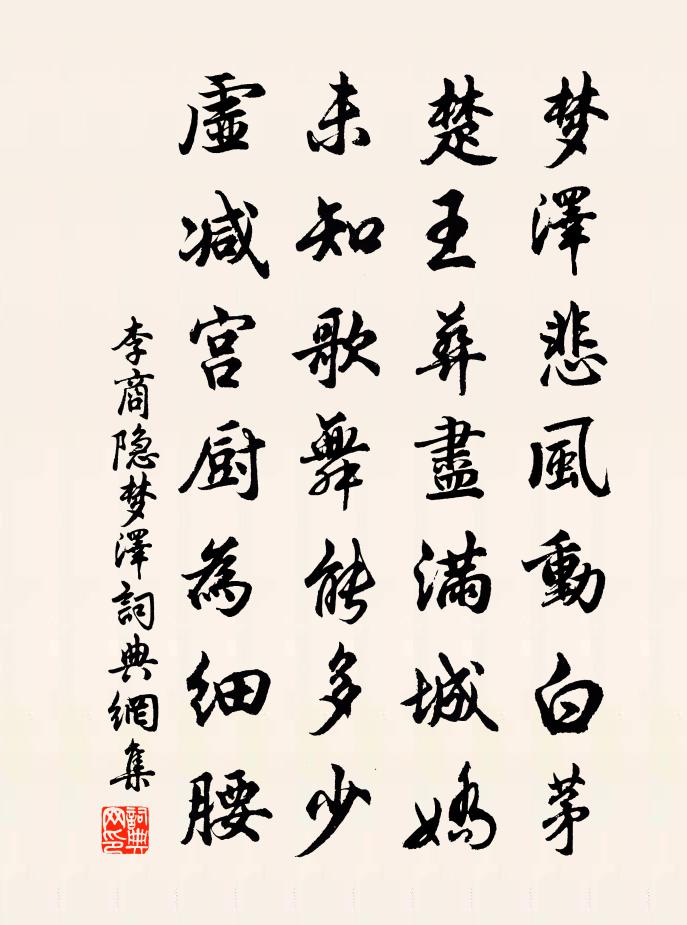 梦澤悲風動白茅
楚王葬盡滿城嬌
未知歌舞能多少
虛减宫厨為细腰
李商隐梦澤詞典網集
詞典网印